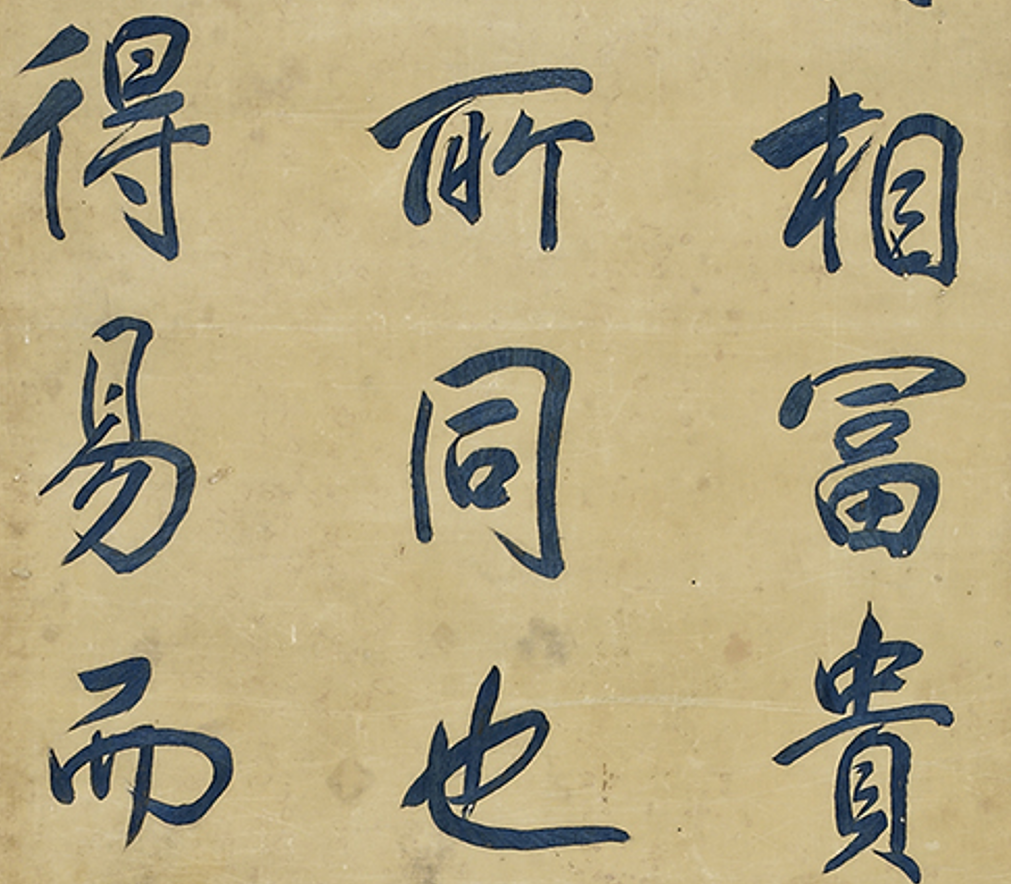 相冨貴
所同也
得易而